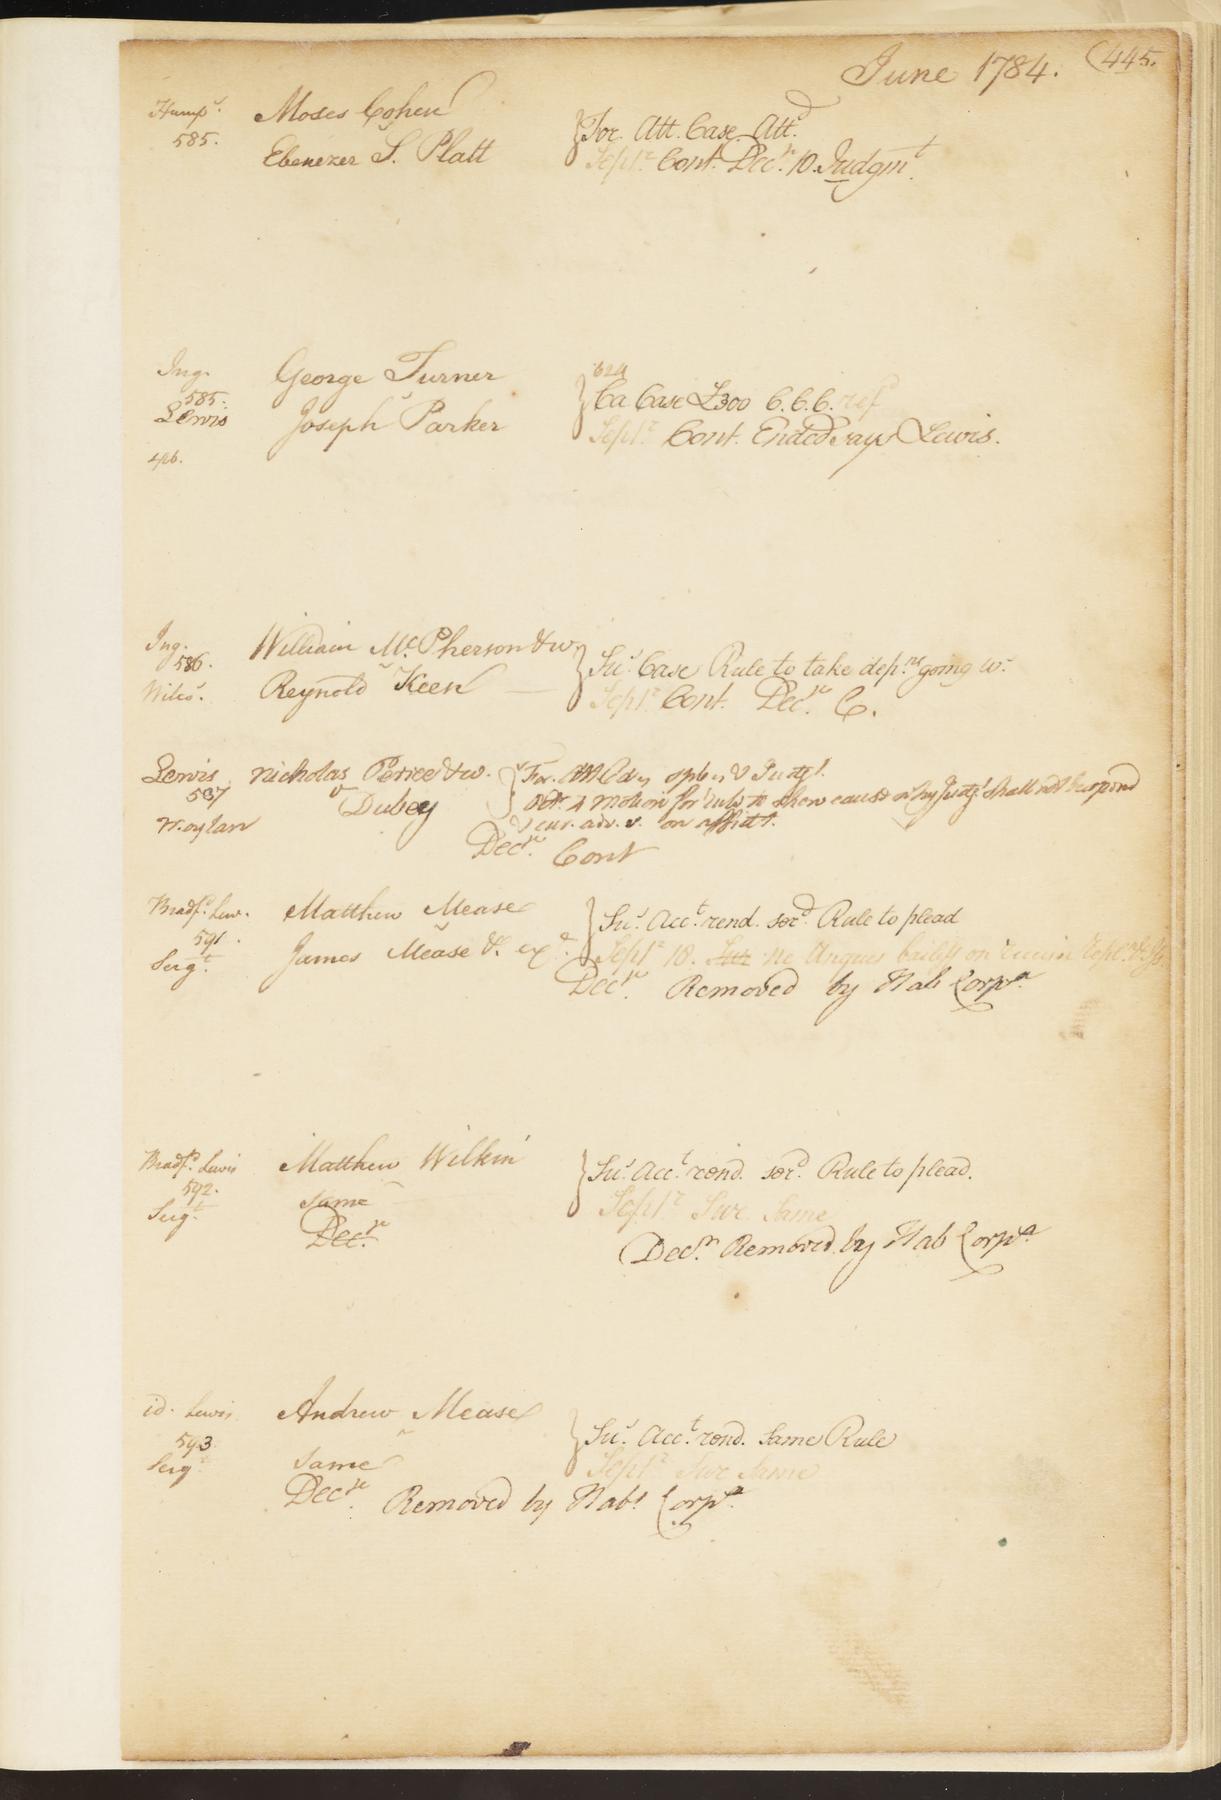 June 1784. (445.
Hump.s Moses Cohen
585. v
Ebenezer S. Platt
For. Att. Case. Att.d
Sept.r Cont. Dec.r 10. Judgm.t
Ing. George Turner
585. v
Lewis Joseph Parker
Ca Case £300 C.C.C. ref
Sept.r Cont. Lewis.
Ing. William Mc.Pherson & w
586. v
Miles. Reynold Keen
Su.s Case Rule to take dep.ns going w.s
Sept.r Cont. Dec.r C.
Lewis Nicholas & w.
587 v
Dubey
For.
motion for rule to shew cause why shall not respond
cur. adv. v. on
Dec.r Cont
Bradf.d Lew. Matthew Mease
591. v
Serg.t James Mease &c. ex
Su.s Acc.t rend. sec.d Rule to plead
Sept.r 18. Sur ne Unques bailiff on
Dec.r Removed by Hab Corp.s
Bradf.d Lewis Matthew Wilkin
592. v
Serg.t Same
Dec.r
Su.s Acc.t rend. sec.d Rule to plead.
Sept.r Sur. Same
Dec.r Removed by Hab Corp.s
id. Lewis Andrew Mease
593 v
Serg.t Same
Su.s Acc.t rend. Same Rule
Sept.r Sur Same
Dec.r Removed by Hab.s Corp.s